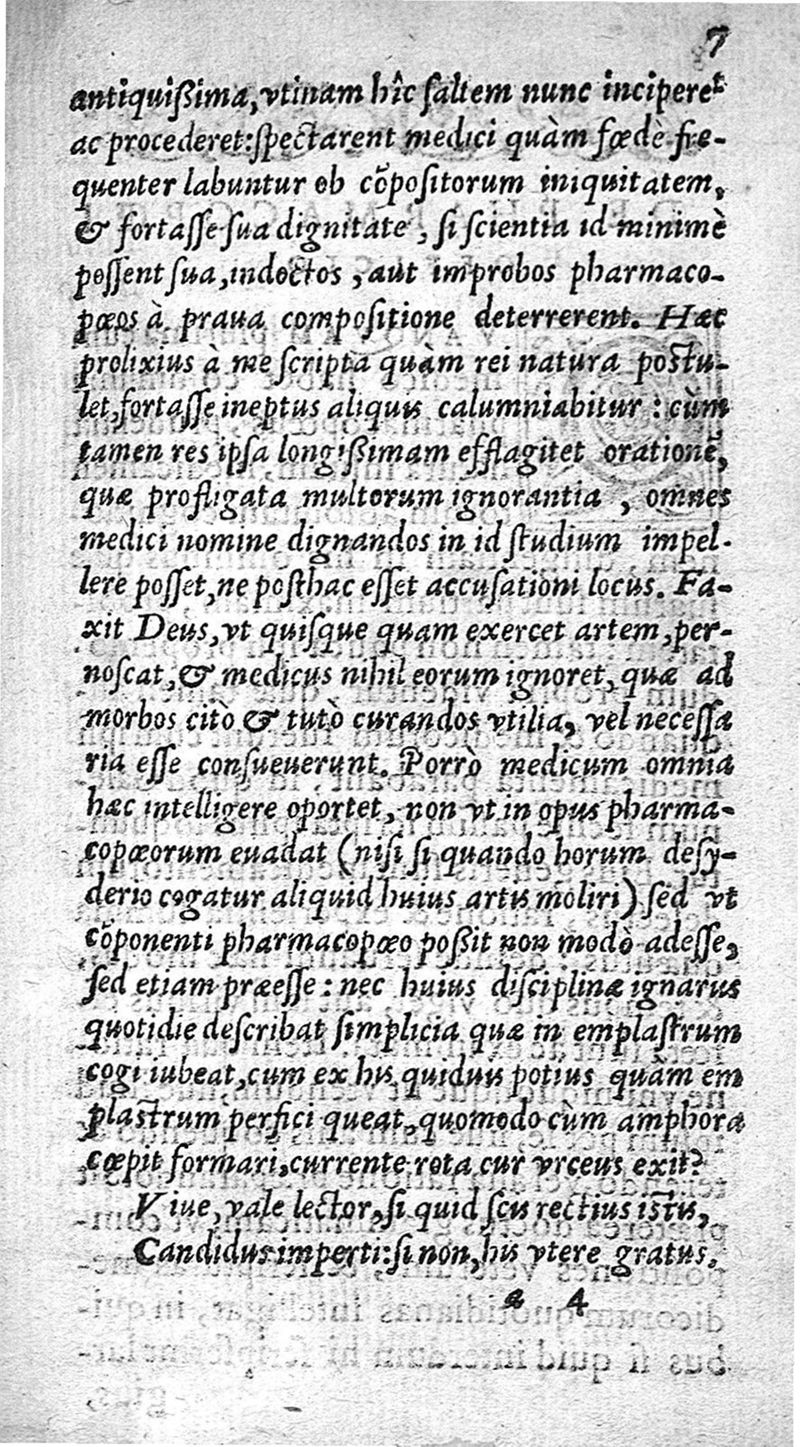 7
antiquißima, vtinam hîc ſaltem nunc inciperet
ac procederet: ſpectarent medici quàm fœdè fre-
quenter labuntur ob cōpoſitorum iniquitatem,
& fortaſſe ſua dignitate, ſi ſcientia id minimè
poſſent ſua, indoctos, aut improbos pharmaco-
pœos à praua compoſitione deterrerent. Hæc
prolixius à me ſcripta quàm rei natura poſtu-
let, fortaſſe ineptus aliquis calumniabitur: cùm
tamen res ipſa longißimam efflagitet orationē,
quæ profligata multorum ignorantia, omnes
medici nomine dignandos in id ſtudium impel-
lere poſſet, ne poſthac eſſet accuſationi locus. Fa-
xit Deus, vt quiſque quam exercet artem, per-
noſcat, & medicus nihil eorum ignoret, quæ ad
morbos citò & tutò curandos vtilia, vel neceſſa
ria eſſe conſueuerunt. Porrò medicum omnia
hæc intelligere oportet, non vt in opus pharma-
copœorum euadat (niſi ſi quando horum deſy-
derio cogatur aliquid huius artis moliri) ſed vt
cōponenti pharmacopœo poßit non modò adeſſe,
ſed etiam præeſſe: nec huius diſciplinæ ignarus
quotidie deſcribat ſimplicia quæ in emplaſtrum
cogi iubeat, cum ex his quiduis potius quàm em
plaſtrum perfici queat, quomodo cùm amphora
cœpit formari, currente rota cur vrceus exit?
Viue, vale lector, ſi quid ſcis rectius iſtis,
Candidus imperti: ſi non, his vtere gratus.
a 4